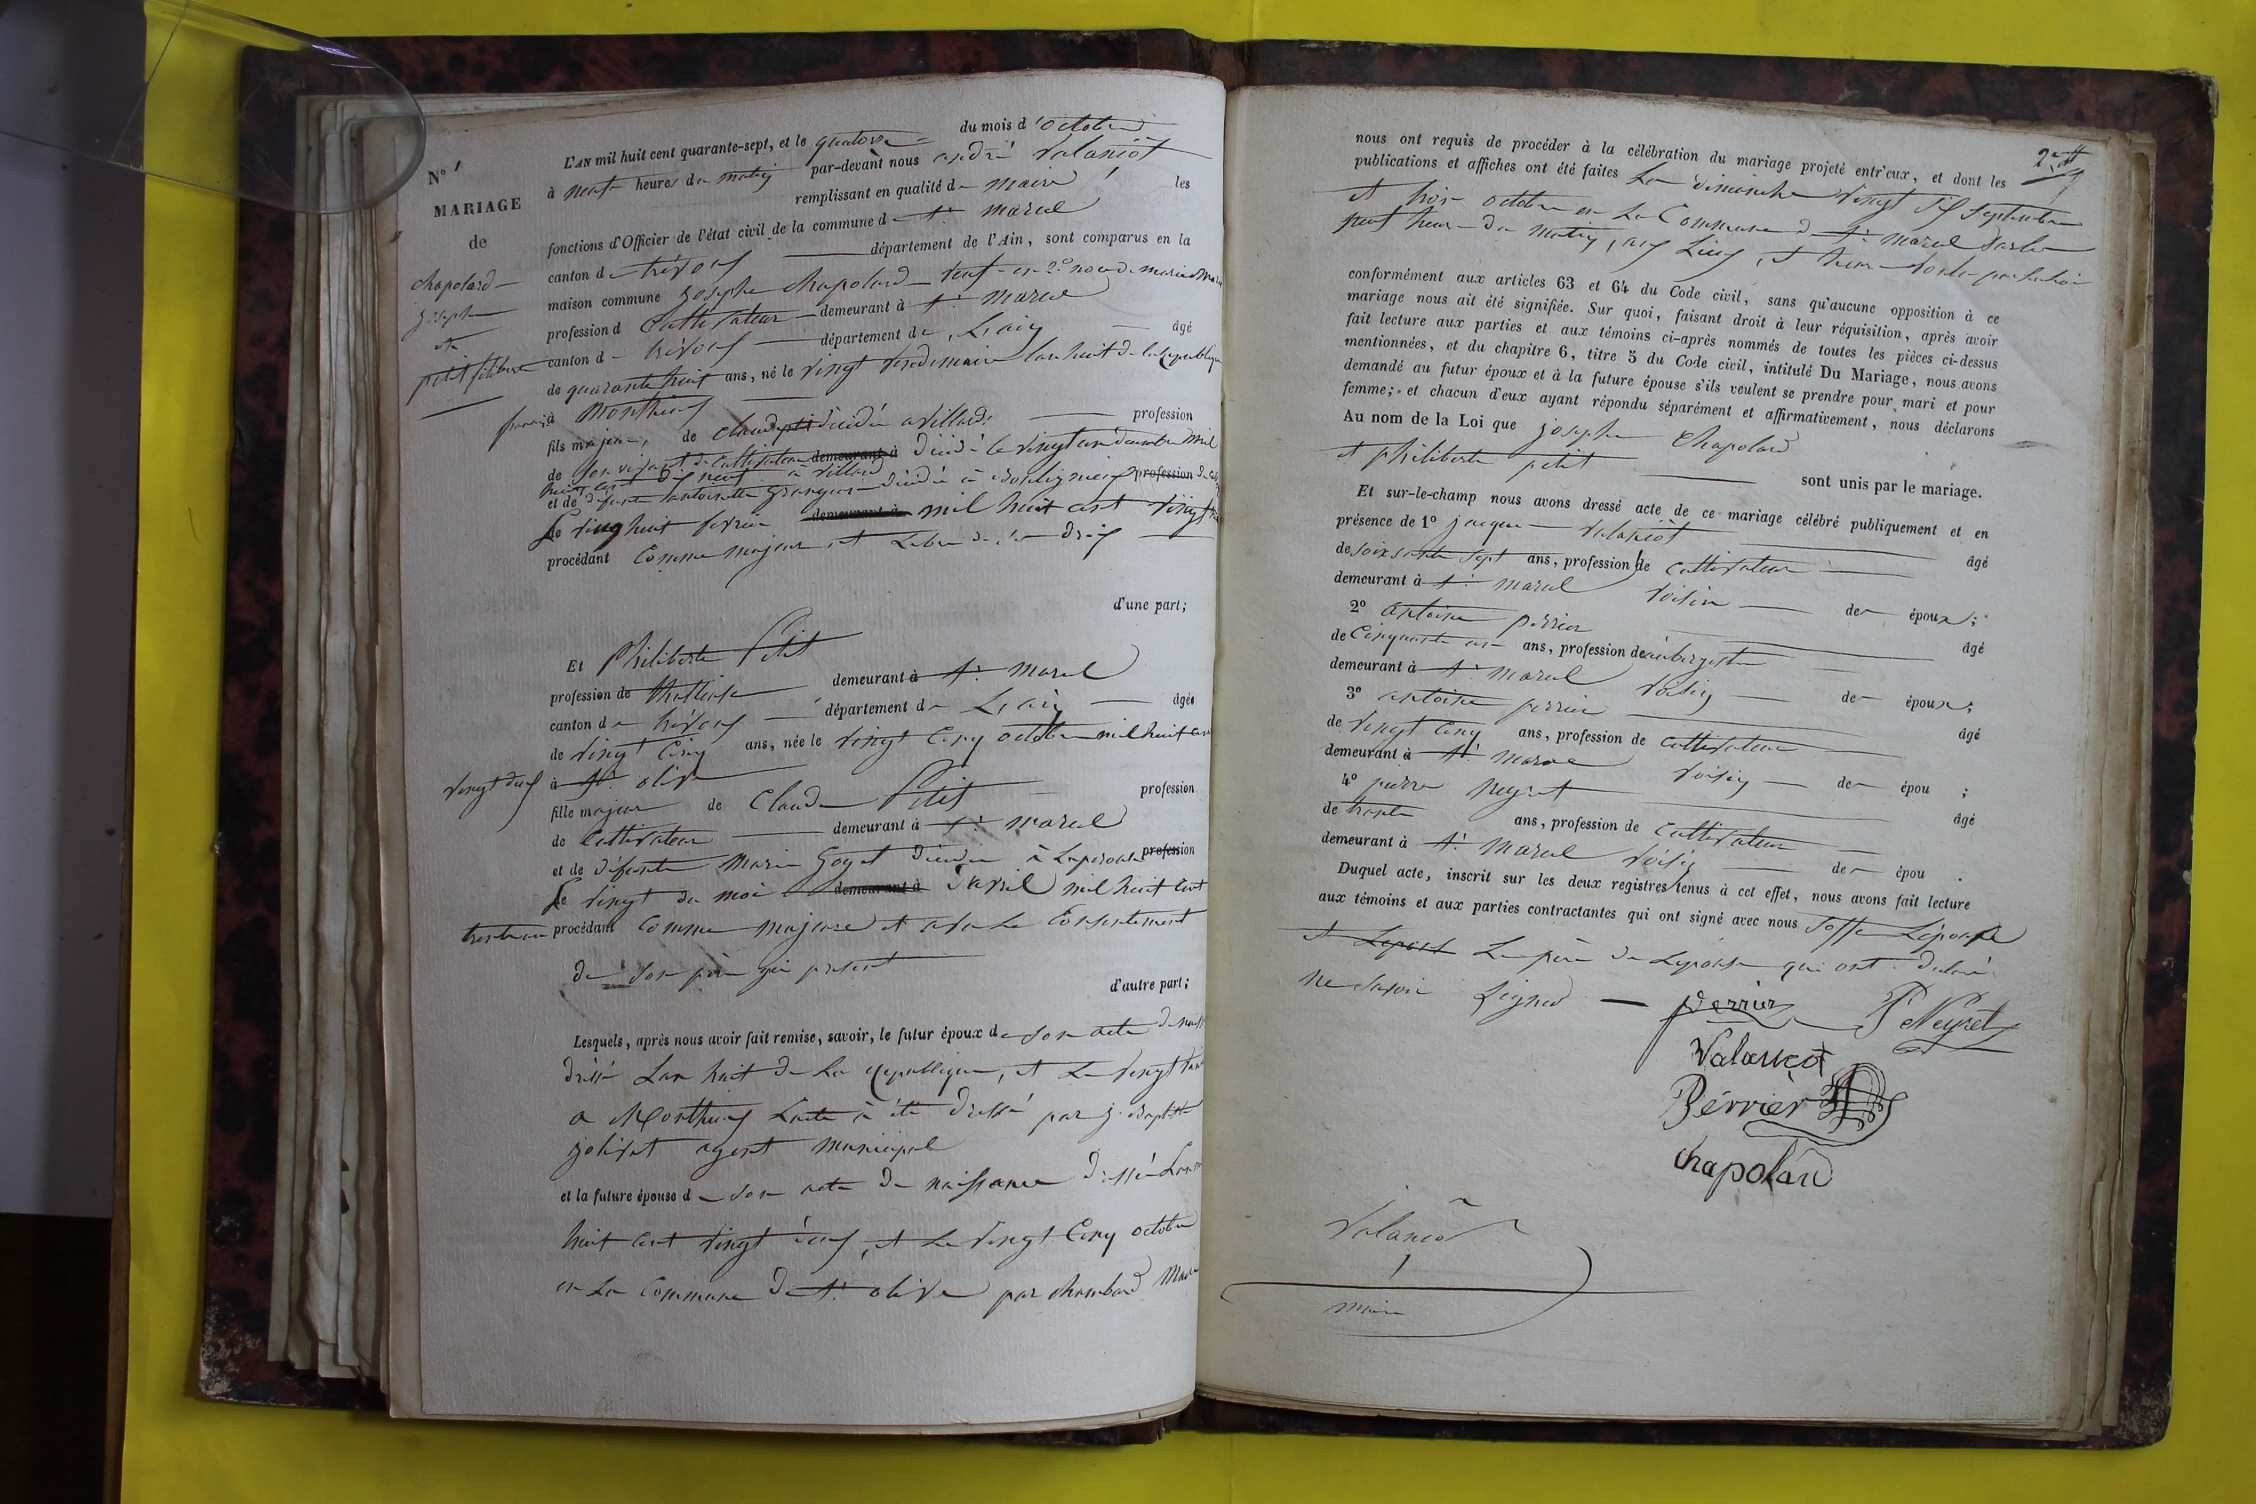 N° 1
MARIAGE
de
chapolard
joseph
et
petit filiberte
L'AN mil huit cent quarante-sept, et le quatorze du mois d'octobre
à neuf heures du matin par-devant nous andré Valanciot
remplissant en qualité de maire les
fonctions d'Officier de l'état civil de la commune de St marcel
canton de trévoux département de l'Ain, sont comparus en la
maison commune joseph chapolard veuf en 2e
profession de Cultivateur demeurant à St marcel
canton de trévoux département de L'ain âgé
de quarante huit ans, né le vingt vendemiaire l'an huit de la republique
française
à Monthieux
fils majeur de Claude décédé a villard profession
de son vivant de Cultivateur demeurant à décédé le vingt un décembre mil
huit cent dix neuf à villard
et de défunte antoinette Granger décédée à profession
Le vingt huit fevrier demeurant à mil huit cent vingt
procédant Comme majeur et Libre de ses droits
d'une part;
Et Philiberte Petit
profession de demeurant à St marcel
canton de trévoux département de L'ain âgée
de vingt Cinq ans, née le vingt Cinq octobre mil huit cent
vingt deux
à Ste olive
fille majeure de Claude Petit profession
de Cultivateur demeurant à St marcel
et de défunte Marie Goyet décédée à Laperouse profession
Le vingt du mois demeurant à d'avril mil huit cent
trente un
procédant Comme majeure et avec le Consentement
de son père ici présent
d'autre part;
Lesquels, après nous avoir fait remise, savoir, le futur époux de son acte de naiss
dréssé L'an huit de La republique, et Le vingt
a Monthieux L'acte à été dressé par j. Baptiste
jolivet agent municipal
et la future épouse de son acte de naissance dressé L'an
huit cent vingt deux, et Le vingt Cinq octobre
en La Commune de Ste olive par chambard Maire
2e
nous ont requis de procéder à la célébration du mariage projeté entr'eux, et dont les
publications et affiches ont été faites Le dimanche vingt six septembre
et trois octobre en La Commune de St marcel
neuf heure du matin, aux Lieux, et heure
conformément aux articles 63 et 64 du Code civil, sans qu'aucune opposition à ce
mariage nous ait été signifiée. Sur quoi, faisant droit à leur réquisition, après avoir
fait lecture aux parties et aux témoins ci-après nommés de toutes les pièces ci-dessus
mentionnées, et du chapitre 6, titre 5 du Code civil, intitulé Du Mariage, nous avons
demandé au futur époux et à la future épouse s'ils veulent se prendre pour mari et pour
femme; et chacun d'eux ayant répondu séparément et affirmativement, nous déclarons
Au nom de la Loi que joseph Chapolard
et philiberte petit sont unis par le mariage.
Et sur-le-champ nous avons dressé acte de ce mariage célébré publiquement et en
présence de 1° jacque valanciot âgé
de soixsante sept ans, profession de Cultivateur
demeurant à St marcel voisin des époux;
2° antoine perrier âgé
de Cinquante un ans, profession de aubergiste
demeurant à St marcel voisin des époux;
3° antoine perrier âgé
de vingt Cinq ans, profession de Cultivateur
demeurant à St marcel voisin des épou ;
4° pierre neyret âgé
de trente ans, profession de Cultivateur
demeurant à St marcel voisin des épou .
Duquel acte, inscrit sur les deux registres tenus à cet effet, nous avons fait lecture
aux témoins et aux parties contractantes qui ont signé avec nous soffe L'épouse
et Le père de L'épouse qui ont déclaré
ne savoir signer
Perrier P Neyret
Valanciot
Périer
chapolard
Valanciot
maire